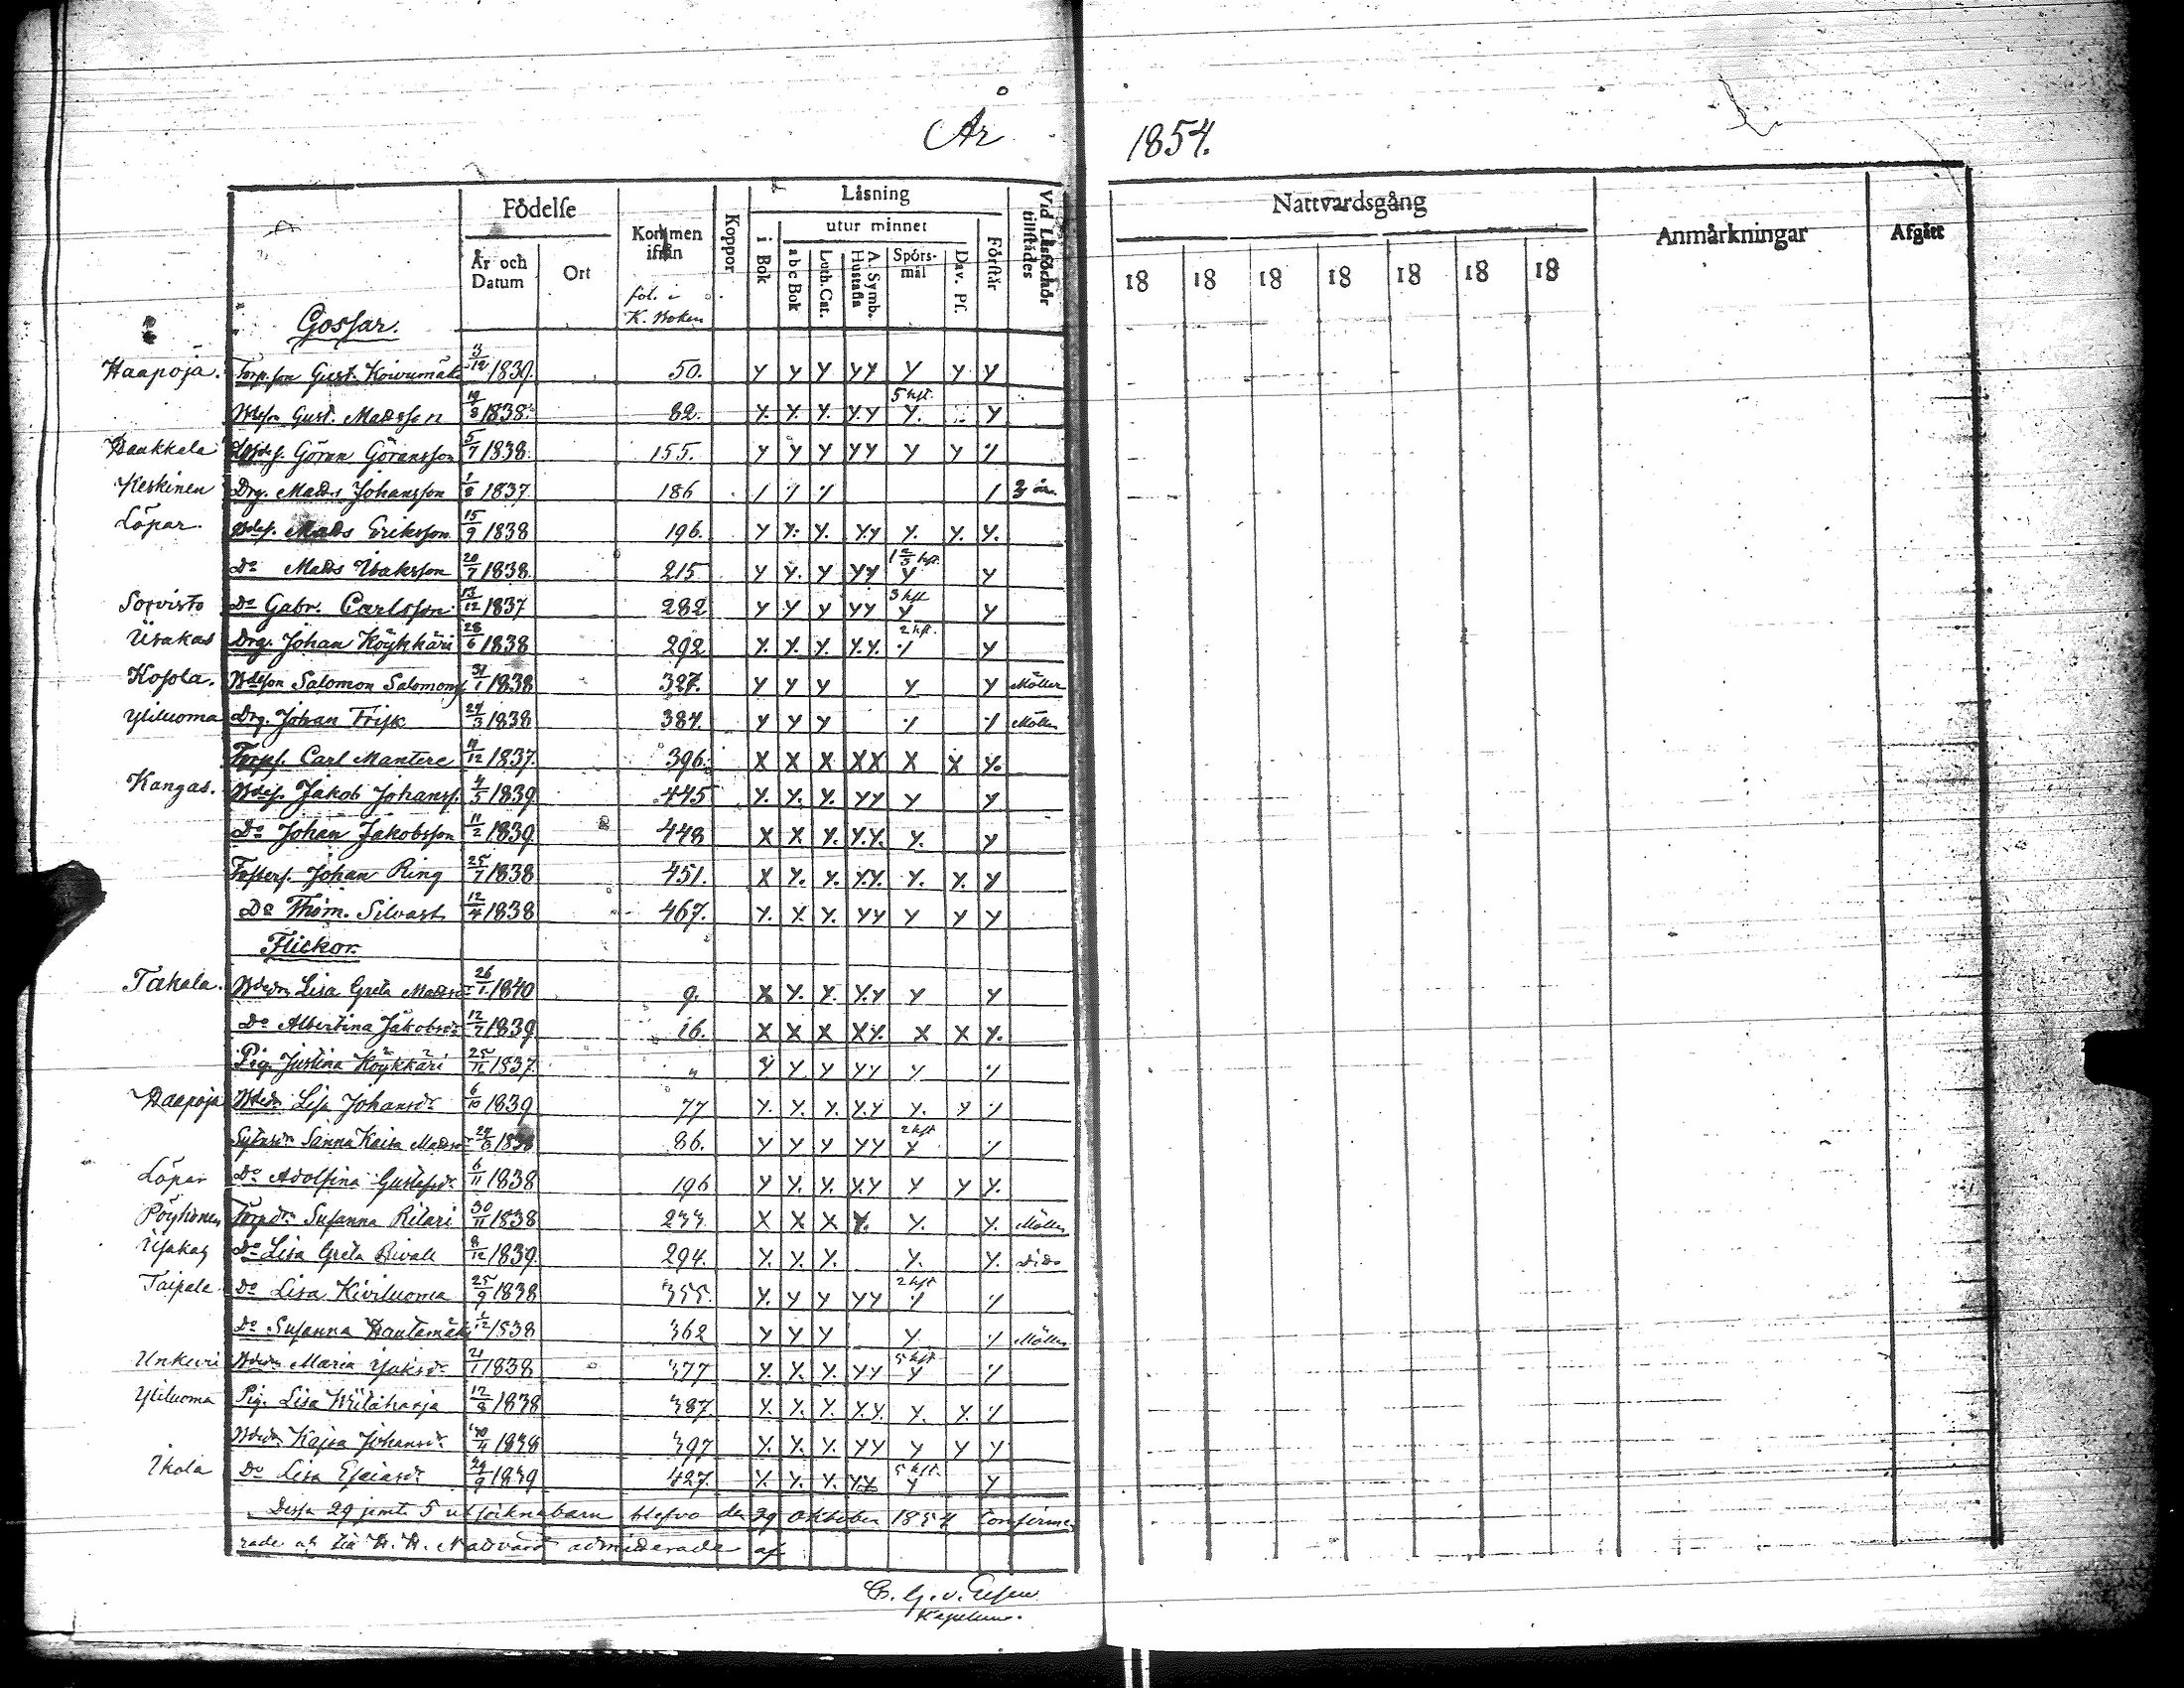 År 1854.
Födelse Kommen ifrån Koppor Läsning Vid Läsförhör tillstädes Nattvardsgång Anmärkningar Afgått
År och Datum Ort i Bok utur minnet Förstår
abc Bok Luth. Cat. A. Symb. Hustafla Spörs-mål Dav. Ps. 18 18 18 18 18 18 18
fol. i K. Boken
Gossar.
Haapoja. Torp.son Gust. Koivumäki 3/12 1839. 50. y y y yy y y y
Bdeson Gust. Madsson 19/8 1838. 82. y. y. y. y.y 5 hft. y. y
Haukkala Göran Göransson 5/7 1838. 155. y y y yy y y /
Keskinen Drg. Mads Johansson 1/8 1837. 186 / / / / 2 år.
Löpar. Bdes. Mads Eriksson 15/9 1838 196. y y. y. y.y y. y. y.
Do Mads Isaksson 20/7 1838. 215 y y. y yy 1 2/3 hft. y y
Sorvisto Do Gabr. Carlsson 13/12 1837 282 y y y yy 3 hft y y
Iisakas Drg. Johan Köykkäri 28/6 1838 292 y. y. y. y.y. 2 hft. / y
Kosola. Bdeson Salomon Salomons. 31/1 1838 327. y y y y y Möller
Yliluoma Drg. Johan Frisk 24/3 1838 384. y y y / / Möller
Torps. Carl Mantere 4/12 1837. 396. x x x xx x x y.
Kangas. Bdes. Jakob Johanss. 4/5 1839 445 y. y. y. yy y y
Do Johan Jakobsson 11/2 1839. 448 x x y. y.y. y. y
Fosters. Johan Ring 25/7 1838 451. x y. y. y.y. y. y. y
Do Thom. Silvast 12/4 1838 467. y. x y. yy y y y
Flickor.
Takala. Bdedr Lisa Greta Madsdr 26/1 1840 9. x y. y. y.y y y
Do Albertina Jakobsdr 12/7 1839 16. x x x xy. x x y.
Pig. Justina Köykkäri 25/12 1837. " y y y yy y /
Haapoja Bdedr Lisa Johansdr 6/10 1839 77 y. y. y. y.y y. y /
Sytnsdr Sanna Kaisa Madsdr 24/8 1838 86. y y y yy 2 hft y /
Löpar Do Adolfina Gustafsdr 6/11 1838 196 y y. y. y.y y y y.
Pöyhönen Torpdr Susanna Rilari 30/11 1838 233 x x x y. y. y. Möller
Iisakas Do Lisa Greta Rivall 8/12 1839. 294. y. y. y. y. y. Dido
Taipale Do Lisa Kiviluoma 25/9 1838 355. y. y y yy 2 hft / /
Do Susanna Hautamäki 1/12 1838 362 y y y y / Möller
Unkuri Bdedr Maria Isaksdr 21/1 1838 377 y. y. y. yy 5 hft y /
Yliluoma Pig. Lisa Wiitaharja 12/8 1838 387. y. y. y. y.y. y. y. /
Bdedr Kajsa Johansdr 30/4 1838 397 y. y. y. yy y y y
Ikola Do Lisa Esaiasdr 29/9 1839 427. y. y. y. y.y. 5 hft. y y
Dessa 29 jemte 5 utsöcknabarn blefvo den 29 Oktober 1854 Confirme-
rade och till H. H. Nattvard admitterade af
C. G. v. Essen
Kapellan.